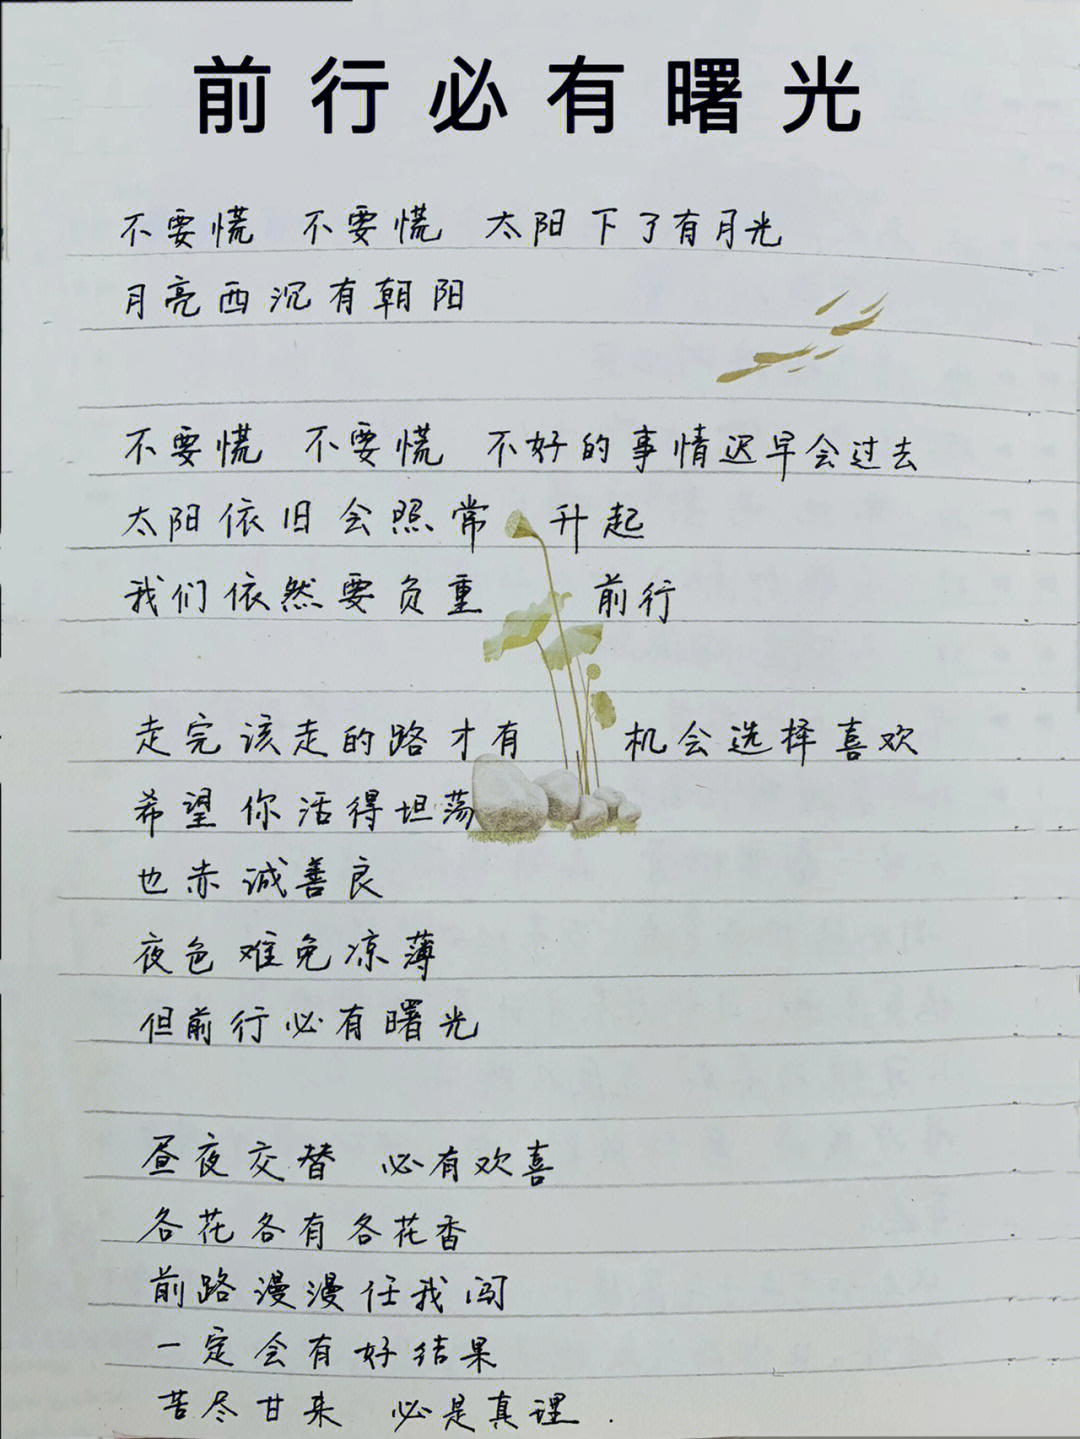 前行必有曙光
不要慌 不要慌 太阳下了有月光
月亮西沉有朝阳
不要慌 不要慌 不好的事情迟早会过去
太阳依旧会照常升起
我们依然要负重 前行
走完该走的路才有 机会选择喜欢
希望你活得坦荡
也赤诚善良
夜色难免凉薄
但前行必有曙光
昼夜交替 必有欢喜
各花各有各花香
前路漫漫任我闯
一定会有好结果
苦尽甘来 必是真理.